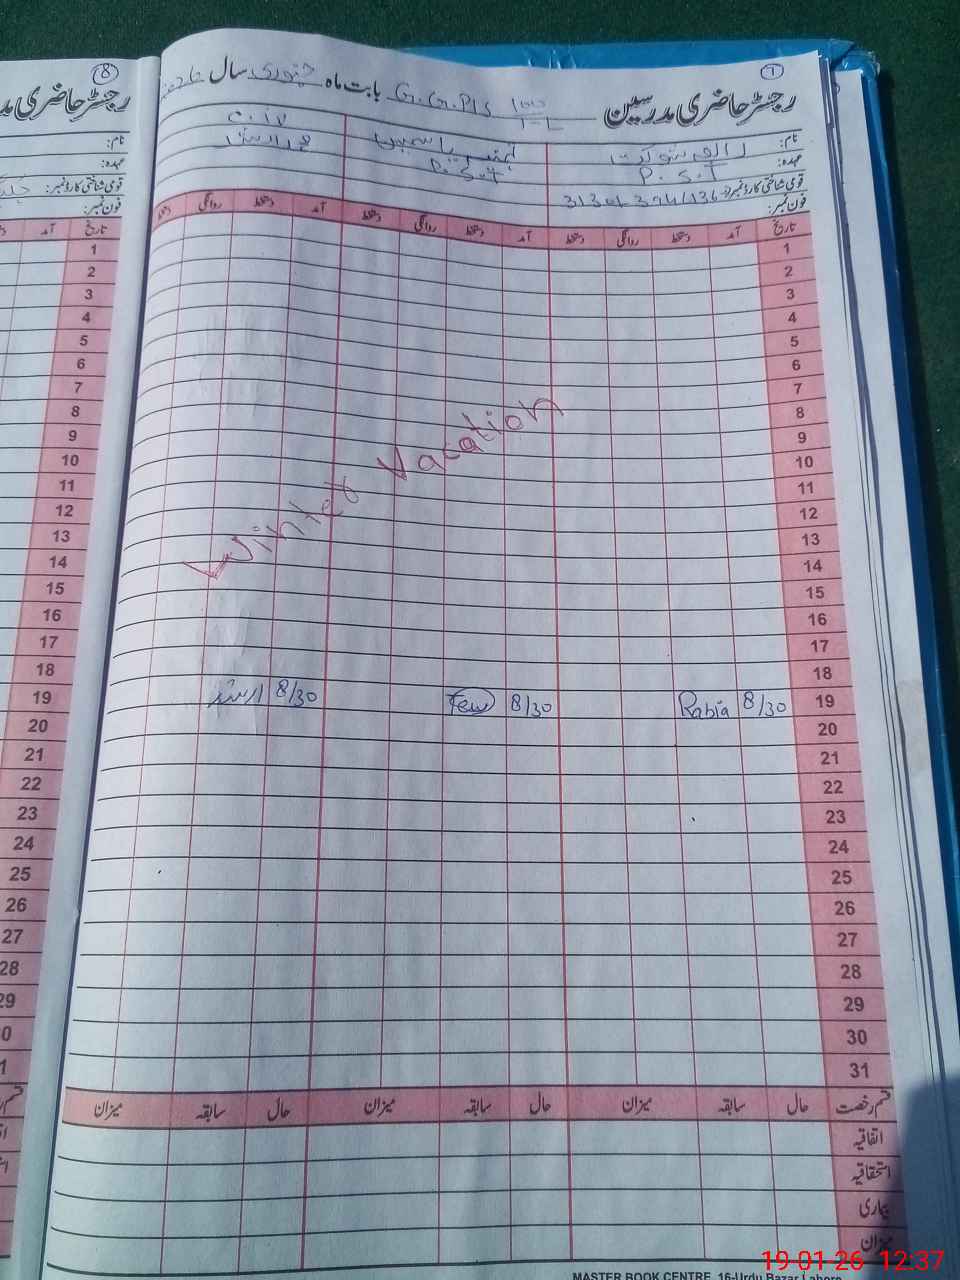 8
رجسٹر حاضری مدرسین G.G.P/S 100/1-L بابت ماہ جنوری سال
1
نام:
عہدہ: P.S.T P.S.T
قومی شناختی کارڈ نمبر:
فون نمبر:
تاریخ آمد دستخط روانگی دستخط آمد دستخط روانگی دستخط آمد دستخط روانگی دستخط
1
2
3
4
5
6
7
8
9
10
11
12
13
14
15
16
17
18
19 8/30 Rabia 8/30 8/30 ارشد
20
21
22
23
24
25
26
27
28
29
30
31
Winter Vacation
قسم رخصت حال سابقہ میزان حال سابقہ میزان حال سابقہ میزان
اتفاقیہ
استحقاقیہ
بیماری
میزان
MASTER BOOK CENTRE, 16-Urdu Bazar Lahore
رجسٹر حاضری مدر
نام:
عہدہ:
قومی شناختی کارڈ نمبر:
فون نمبر:
تاریخ آمد
1
2
3
4
5
6
7
8
9
10
11
12
13
14
15
16
17
18
19
20
21
22
23
24
25
26
27
28
29
0
1
19-01-26 12:37